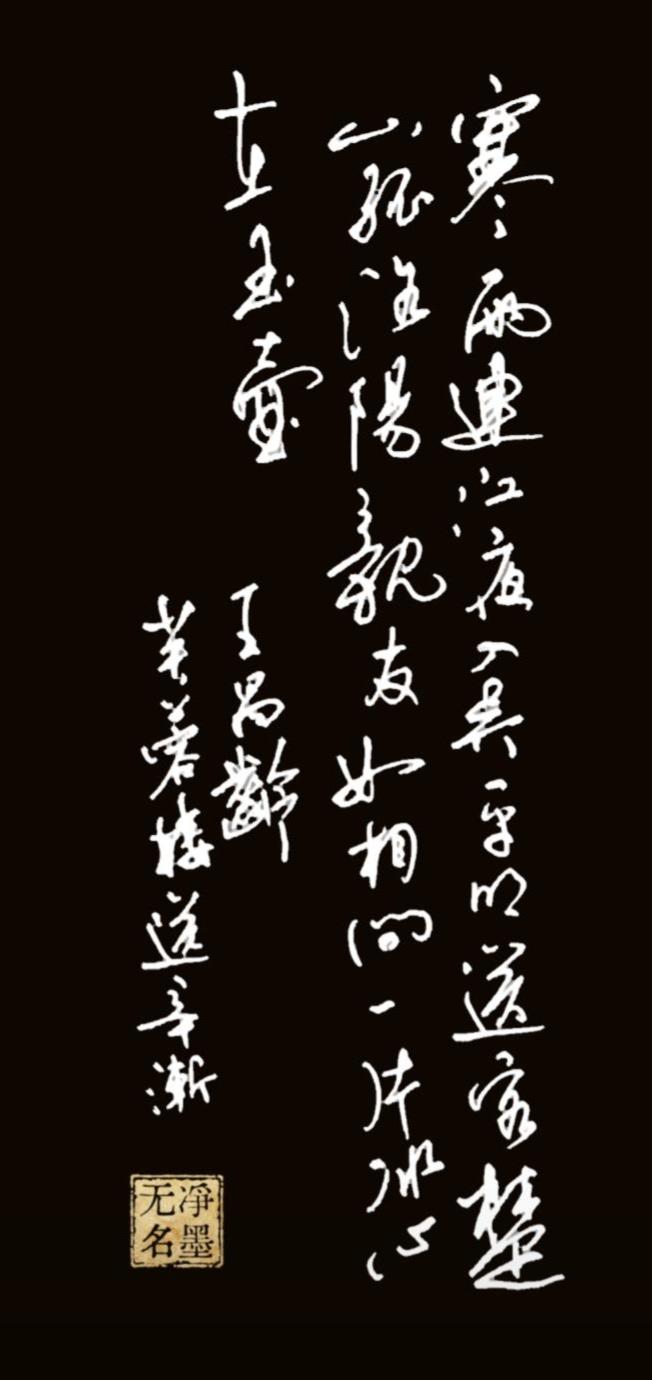 寒雨連江夜入吳平明送客楚
山孤洛陽親友如相問一片冰心
在玉壺
王昌齡
芙蓉樓送辛漸
凈墨
无名